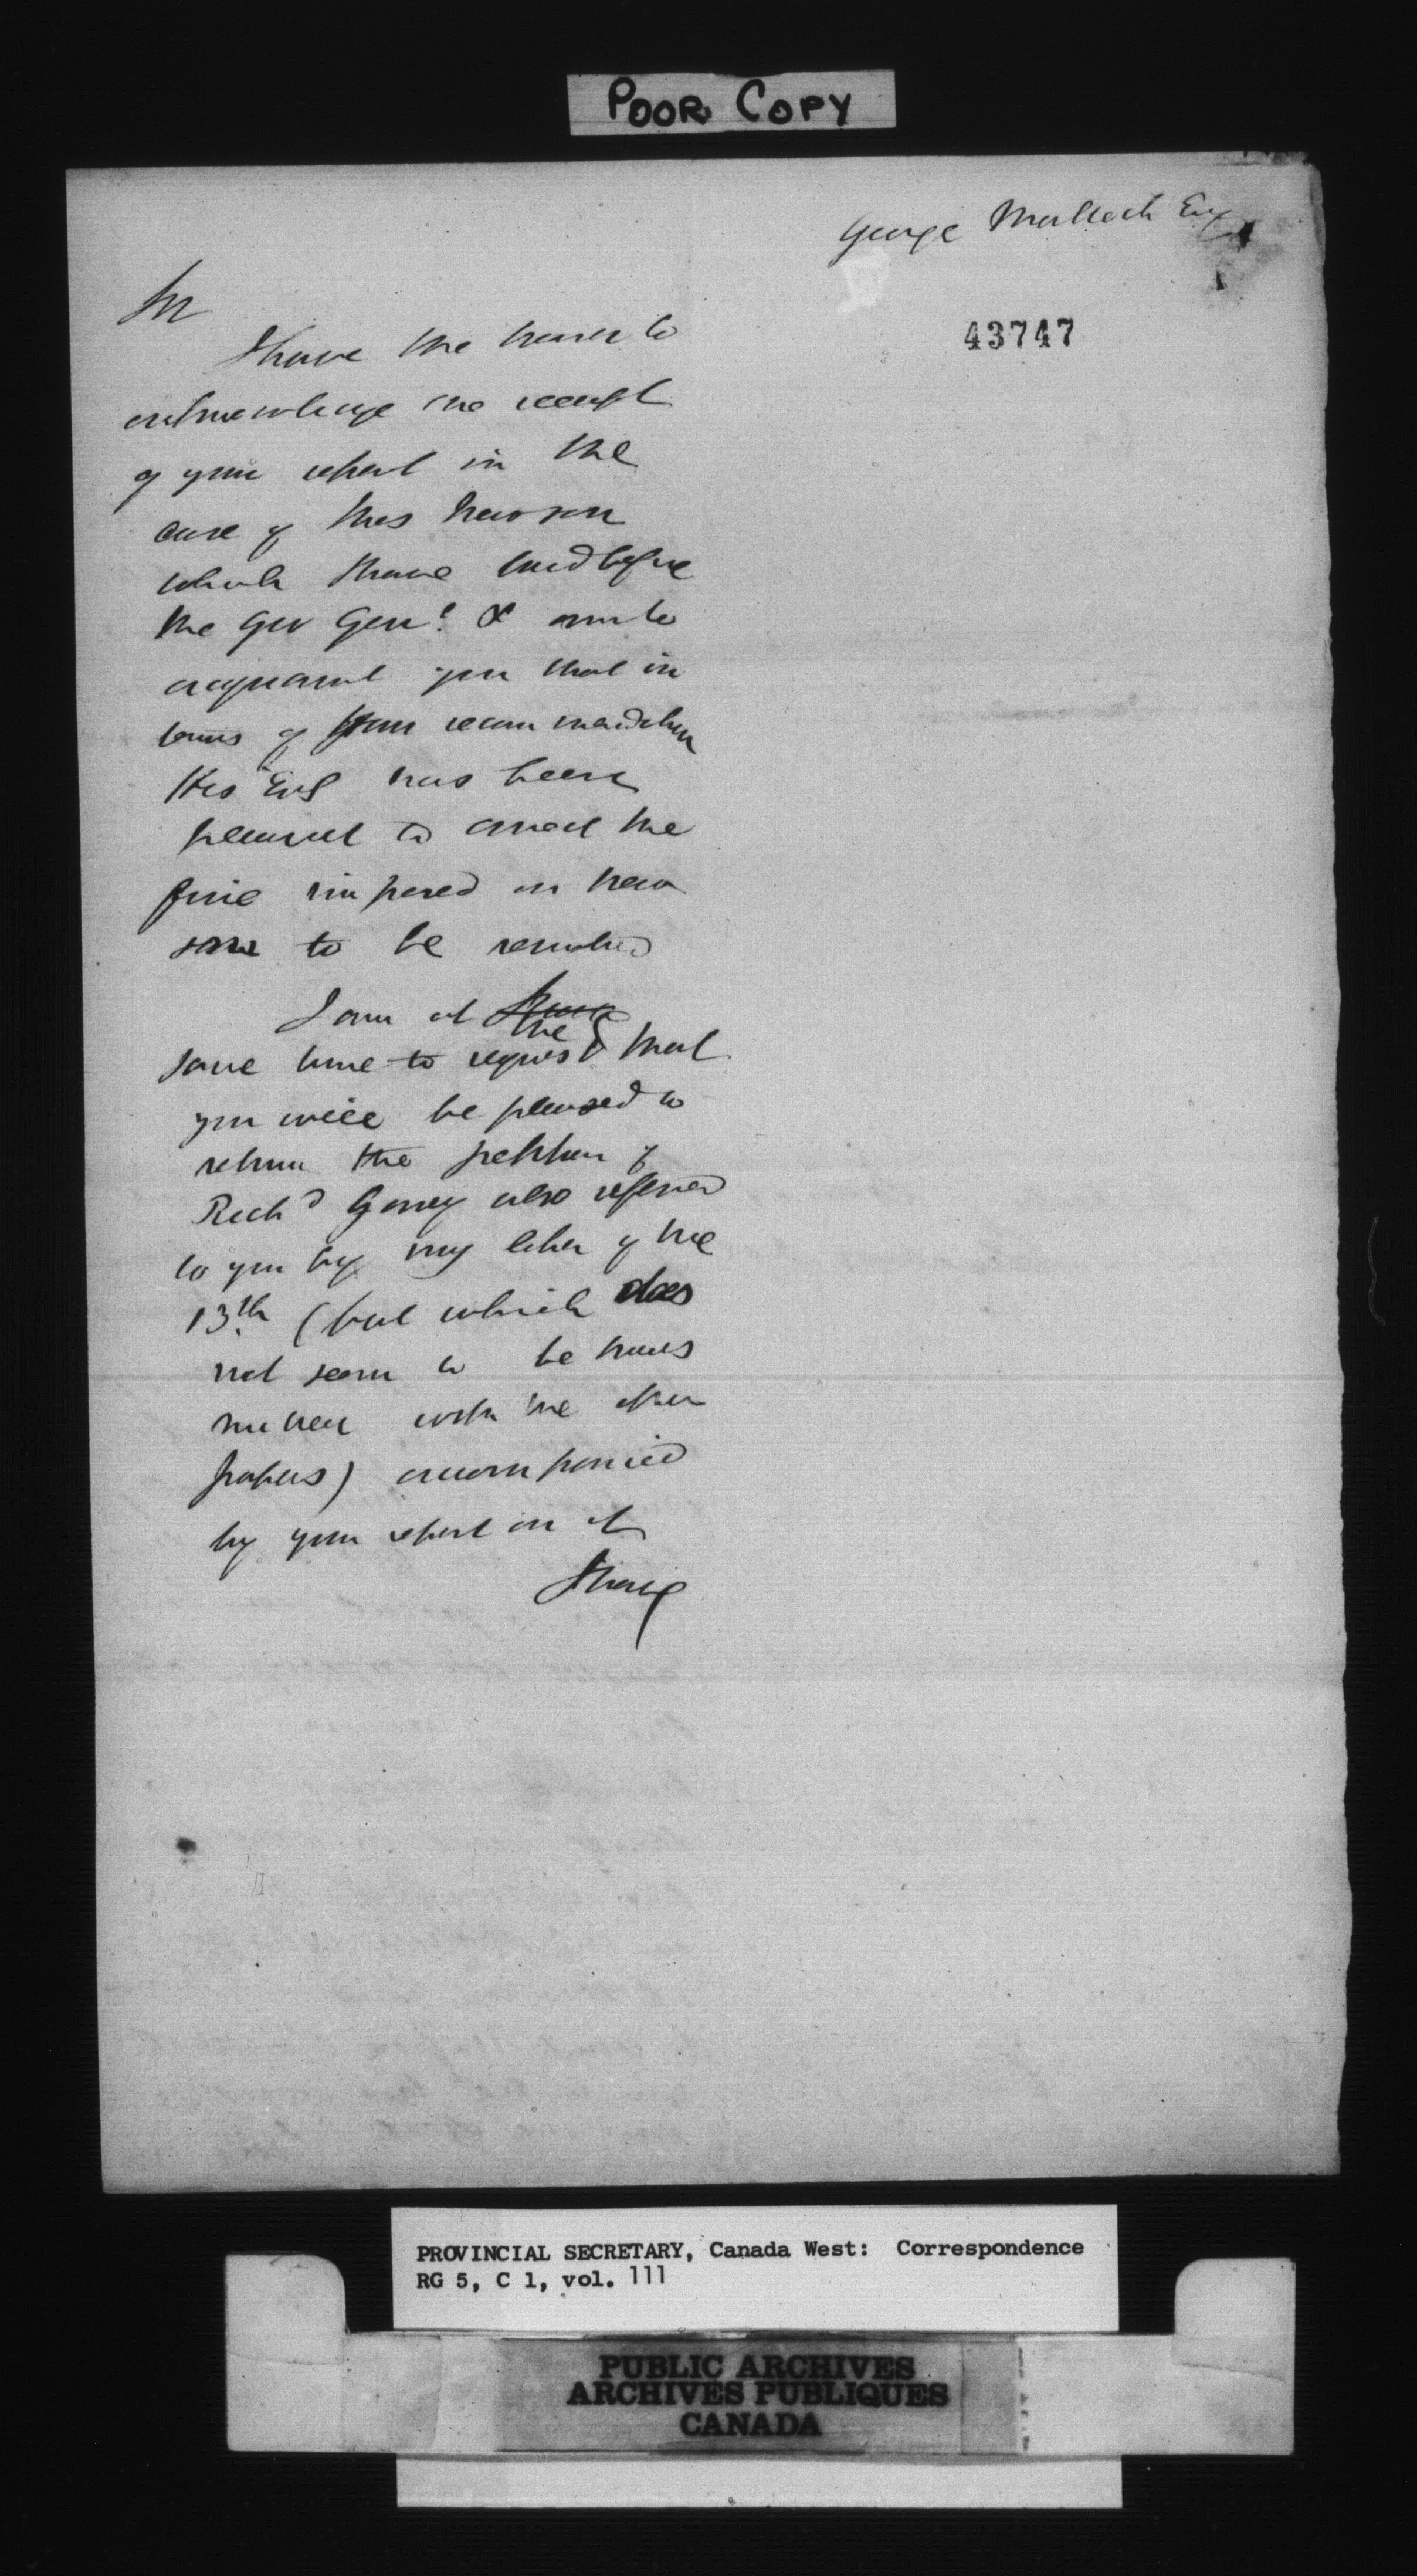 POOR COPY
George Malloch Esq
43747
Sir
I have the honor to
acknowledge the receipt
of your report in the
case of Thos Newson
which I have laid before
the Gov Genl. & am to
acquaint you that in
terms of your recommendation
His Exc has been
pleased to the
fine imposed on New
son to be remitted
I am at
the
same time to request that
you will be pleased to
return the petition of
Richd Gorrey also referred
to you by my letter of the
13th (but which does
not seem to be trans
mitted with the other
papers) accompanied
by your report on it
I have
PROVINCIAL SECRETARY, Canada West: Correspondence
RG 5, C 1, vol. 111
PUBLIC ARCHIVES
ARCHIVES PUBLIQUES
CANADA